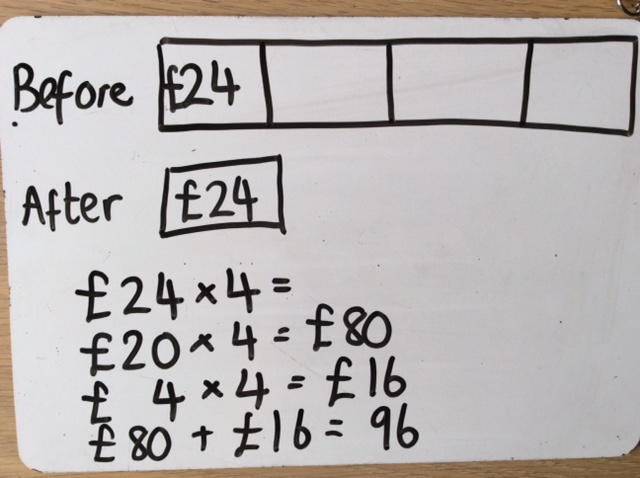 Before £24
After £24
£24 × 4 =
£20 × 4 = £80
£ 4 × 4 = £16
£80 + £16 = 96